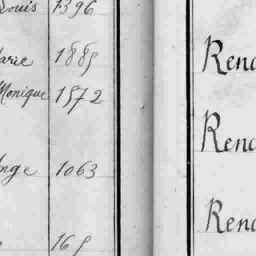 Louis 1396
arie 1885
Monique 1572
nge 1063
165
Rena
Rena
Rena